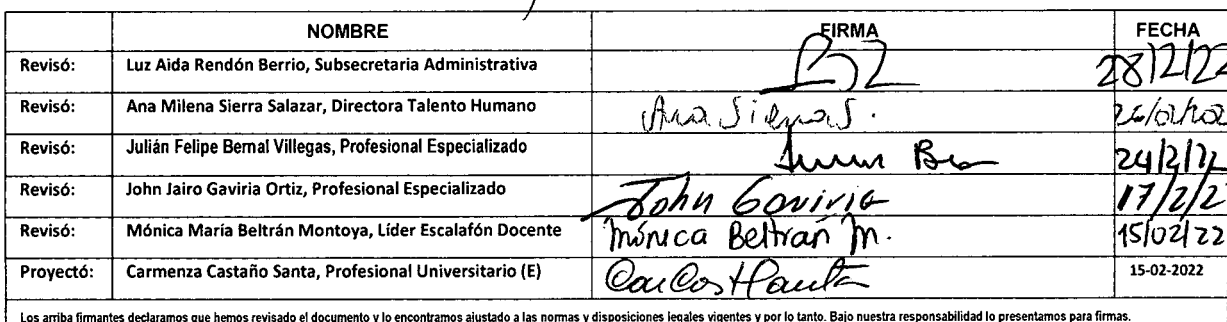 NOMBRE FIRMA FECHA
Revisó: Luz Aida Rendón Berrio, Subsecretaria Administrativa 28/2/22
Revisó: Ana Milena Sierra Salazar, Directora Talento Humano Ana Sierra S.
Revisó: Julián Felipe Bernal Villegas, Profesional Especializado 24/2/22
Revisó: John Jairo Gaviria Ortiz, Profesional Especializado John Gaviria 17/2/2
Revisó: Mónica María Beltrán Montoya, Líder Escalafón Docente Mónica Beltrán M. 15/02/22
Proyectó: Carmenza Castaño Santa, Profesional Universitario (E) 15-02-2022
Los arriba firmantes declaramos que hemos revisado el documento y lo encontramos ajustado a las normas y disposiciones legales vigentes y por lo tanto. Bajo nuestra responsabilidad lo presentamos para firmas.